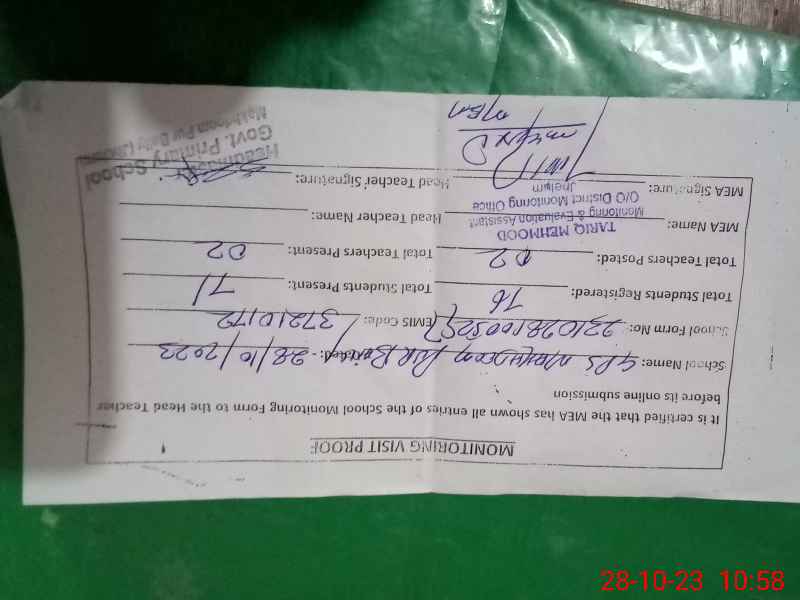 MONITORING VISIT PROOF
It is certified that the MEA has shown all entries of the School Monitoring Form to the Head Teacher
before its online submission
School Name: GPS Makhdoom Pur Dated: 28/10/2023
School Form No: EMIS Code: 37210172
Total Students Registered: 76 Total Students Present: 71
Total Teachers Posted: 02 Total Teachers Present: 02
TARIQ MEHMOOD
MEA Name: Monitoring & Evaluation Assistant Head Teacher Name:
O/O District Monitoring Office
MEA Signature: Jhelum Head Teacher Signature:
Headmaster
Govt. Primary School
Makhdoom Pur
MEA
28-10-23 10:58